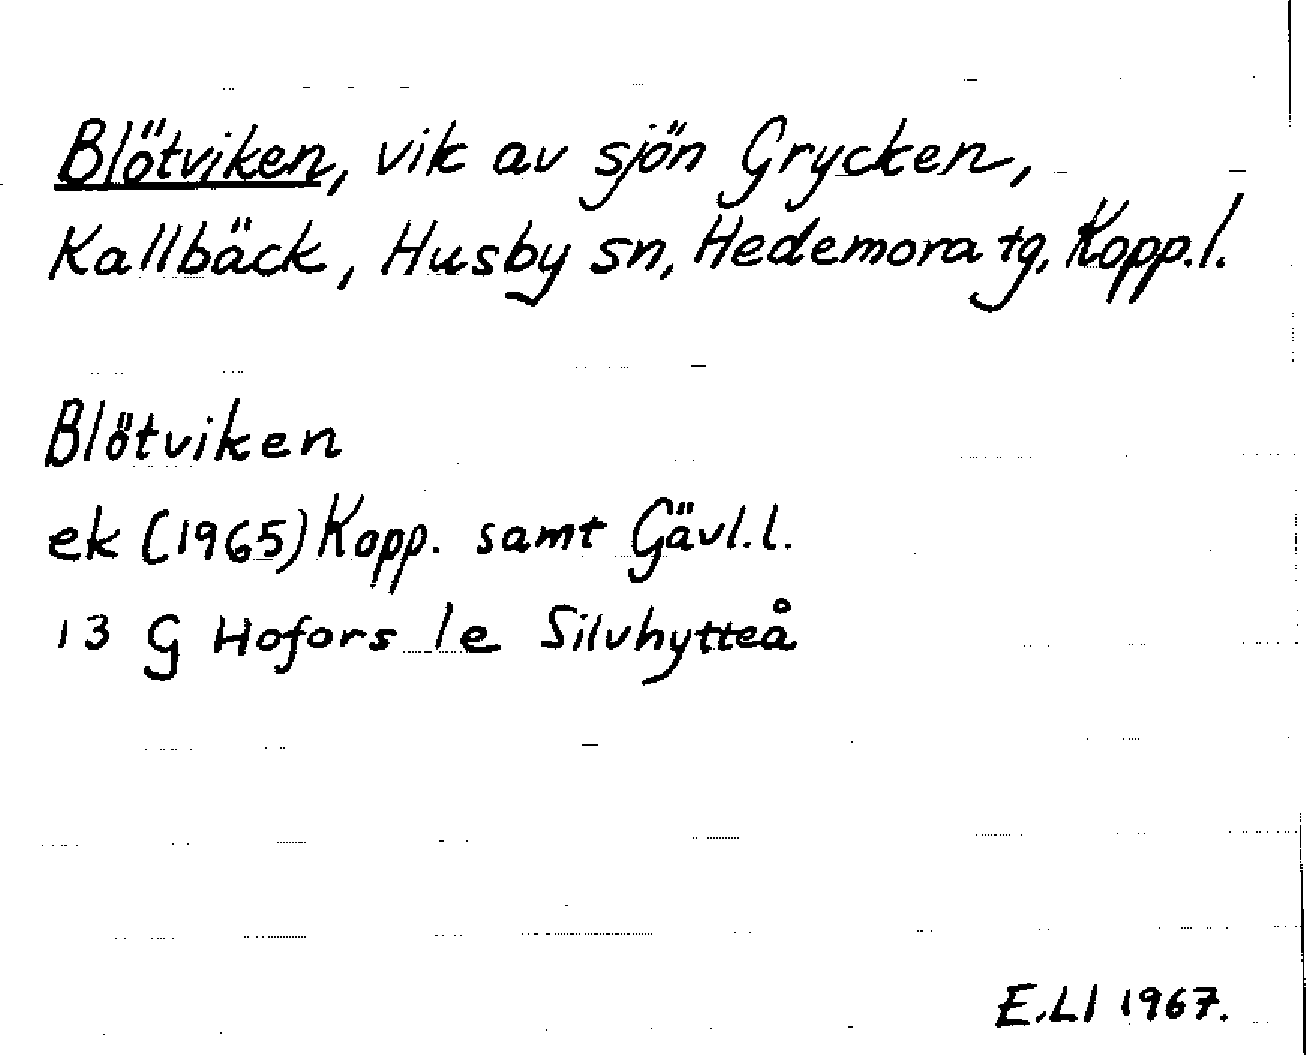 Blötviken, vik av sjön Grycken,
Kallbäck, Husby sn, Hedemora tg, Kopp.l.
Blötviken
ek (1965) Kopp. samt Gävl.l.
13 G Hofors 1e Silvhytteå
E.Ll 1967.